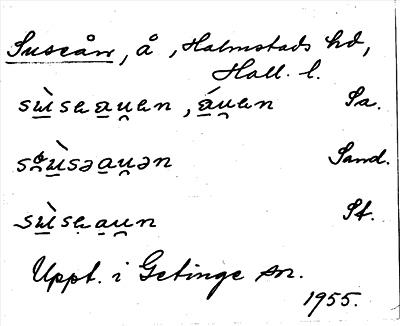 Suseån, å, Halmstads hd,
Hall. l.
sùsɐau̯ɐn, áu̯ɐn Sa.
Sand.
sùsɐau̯n St.
Uppt. i Getinge sn.
1955.